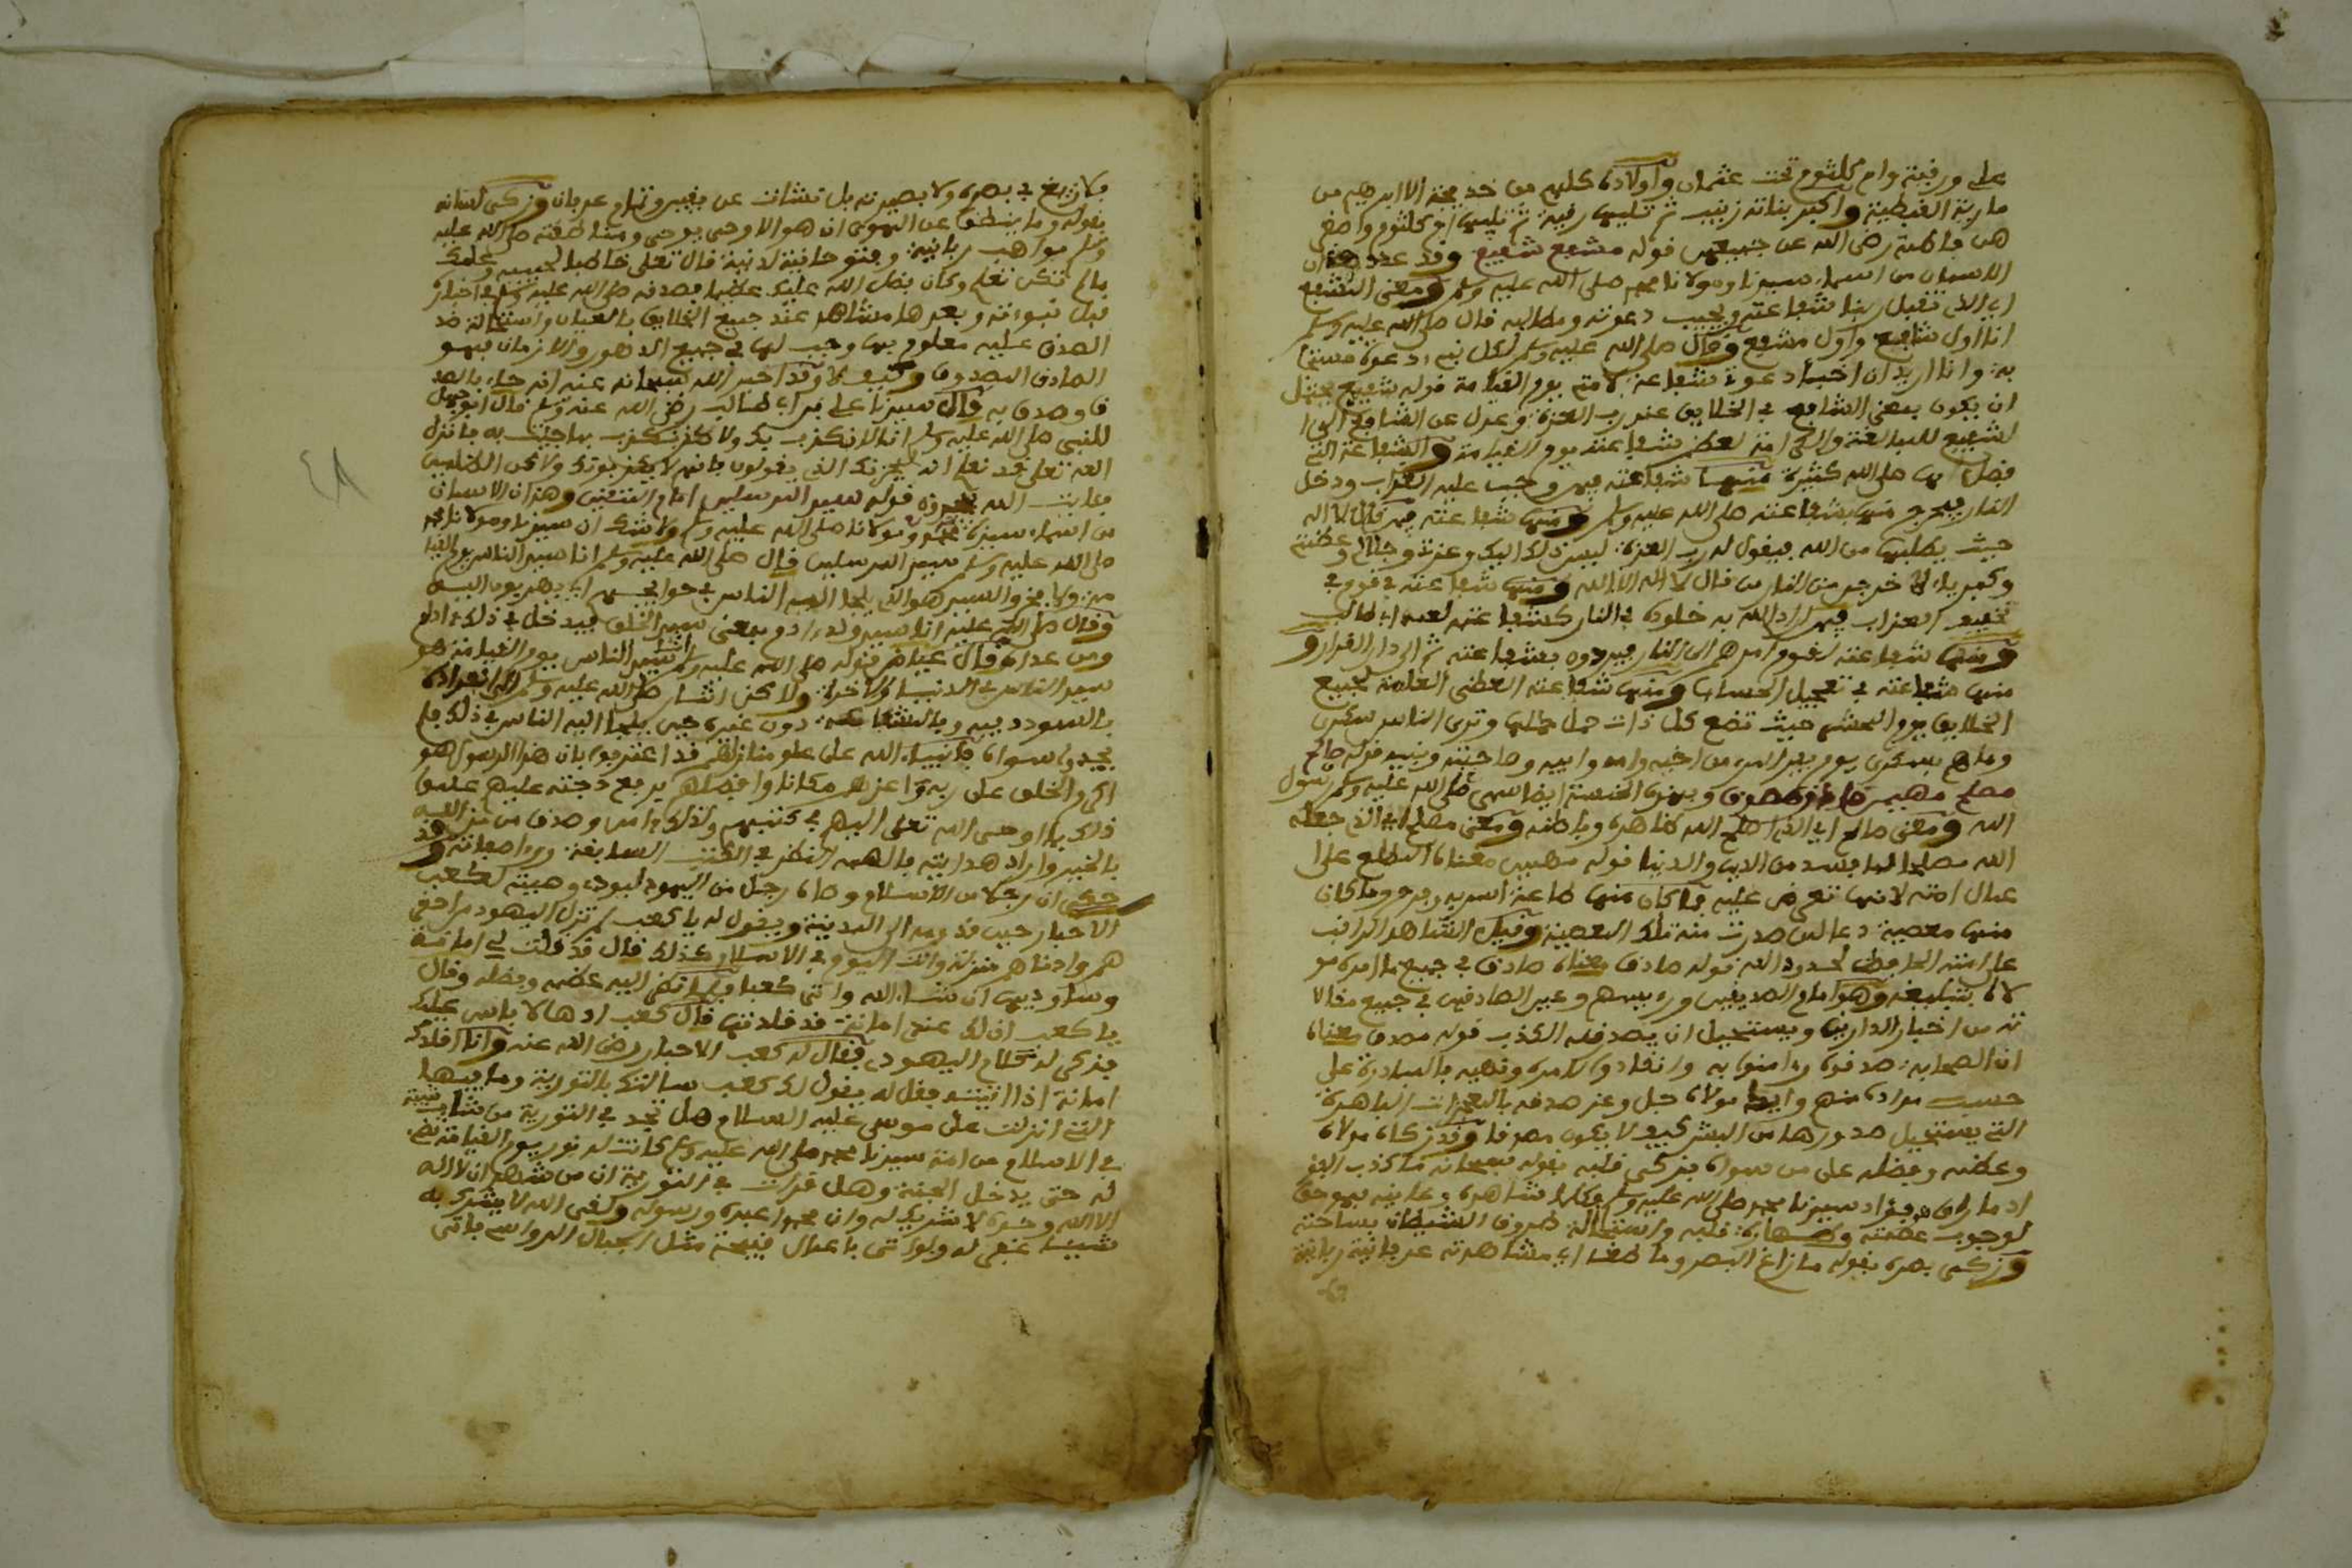 علي ورقية وام كلثوم تحت عثمان وأولاده كلهم من خديجة الا ابرهيم من
مارية القبطية واكبر بناته زينب ثم تليها رقية ثم تليها ام كلثوم واصغر
هن فاطمة رضي الله عن جميعهن قوله مشفع شفيع وقد عدد هذان
الاسمان من اسماء سيدنا ومولانا محمد صلى الله عليه وسلم ومعنى المشفع
اي الذي تقبل شفاعته ويجيب دعوته ومطالبه قال صلى الله عليه وسلم
انا اول شافع واول مشفع وقال صلى الله عليه وسلم لكل نبي دعوة مستجا
بة وانا اريد ان اختبا دعوة شفاعة لامتي يوم القيامة قوله شفيع يحتمل
ان يكون بمعنى الشافع في الخلايق عند رب العزة وعدل عن الشافع الى
الشفيع للمبالغة شفاعته يوم القيامة والشفاعة التي
صلى الله كثيرة منها شفاعته فيمن وجب عليه العذاب ودخل
النار فيخرج منها بشفاعته صلى الله عليه وسلم ومنها شفاعته فيمن قال لا اله
حيث يطلبها من الله فيقول له رب العزة ليس ذلك اليك وعزتي وجلالي وعظمتي
وكبرياء لا خرجن من النار من قال لا اله الا الله ومنها شفاعته في قوم في
تخفيف العذاب فيمن اراد الله به خلوده في النار كشفاعته لعمه ابي طالب
ومنها شفاعته لقوم امر بهم الى النار فيردون بشفاعته ثم الى دار القرار و
منها شفاعته في تعجيل الحساب ومنها شفاعته العظمى العامة لجميع
الخلايق يوم المحشر حيث تضع كل ذات حمل حملها وترى الناس سكرى
وما هم بسكرى يوم يفر المرء من اخيه وامه وابيه وصاحبته وبنيه قوله صالح
مصلح مهيمن صادق مصدق وبهذه الخمسة ايضا سمي صلى الله عليه وسلم رسول
الله ومعنى صالح اي الذي اصلح الله ظاهره وباطنه ومعنى مصلح اي الذي جعله
الله مصلحا لما يفسد من الدين والدنيا قوله مهيمن معناه المطلع على ا
عمال امته لانها تعرض عليه فما كان منها طاعة اسر به وفرح وما كان
منها معصية دعا لمن صدرت منه تلك المعصية وقيل الشاهد المراقب
على امته الحافظ لحدود الله قوله صادق معناه صادق في جميع ما امره مو
لاه بتبليغه وهو امام الصديقين ورءيسهم وعين الصادقين في جميع مقالا
ته من اخبار الدارين ويستحيل ان يصدقه الكذب قوله مصدق معناه
ان الصحابة صدقوه وءامنوا به وانقادوا لامره ونهيه بالمبادرة على
حسب مراده منهم وايده مولاه جل وعز صدقه بالمعجزات الباهرة
التي يستحيل صدورها من البشر كيف لا يكون مصدقا وقد زكاه مولاه
وعظمه وفضله على من سواه فزكى قلبه بقوله سبحانه ما كذب الفؤ
اد ما راى ففؤاد سيدنا محمد صلى الله عليه وسلم وكلما شاهده وعاينه فهو حق
لوجوب عصمته وطهارة قلبه واستحالة طروق الشيطان بساحته
وزكى بصره بقوله ما زاغ البصر وما طغى اي مشاهدته عرفانية ربانية
فلا زيغ في بصره ولا بصيرته بل نشات عن يقين وتمام عرفان وزكى لسانه
بقوله وما ينطق عن الهوى ان هو الا وحي يوحى ومناطقته صلى الله عليه
وسلم مواهب ربانية وفتوحانية لدنية قال تعلى خاطبا لحبيبه وعلمك
ما لم تكن تعلم وكان فضل الله عليك عظيما فصدقه صلى الله عليه وسلم في اخباره
قبل نبوءته وبعدها مشاهد عند جميع الخلايق بالعيان واستحالة ضد
الصدق عليه معلوم بها وجب لها في جميع الدهور والازمان فهو
الصادق المصدوق وكيف لا وقد اخبر الله سبحانه عنه انه جاء بالصد
ق وصدق به قال سيدنا علي بن ابي طالب رضي الله عنه قال ابو جهل
للنبي صلى الله عليه وسلم انا لا نكذب بك ولاكن نكذب بما جئت به فانزل
الله تعلى قد نعلم انه ليحزنك الذي يقولون فانهم لا يكذبونك ولاكن الظالمين
بئايت الله يجحدون قوله سيد المرسلين امام المتقين وهذان الاسمان
من اسماء سيدنا محمد ومولانا صلى الله عليه وسلم ولا شك ان سيدنا ومولانا محمد
صلى الله عليه وسلم سيد المرسلين قال صلى الله عليه وسلم انا سيد الناس يوم القيا
مة ولا فخر والسيد هو الذي يلجا اليه الناس في حوائجهم اي يهرعون اليه
وقال صلى الله عليه انا سيد ولد ءادم بمعنى سيد الخلق فيدخل في ذلك ءادم
ومن عداه قال عياض قوله صلى الله عليه وسلم انا سيد الناس يوم القيامة هو
سيد الناس في الدنيا والاخرة ولاكن اشار صلى الله عليه وسلم الى انفراده
بالسودد فيه وبالشفاعة دون غيره حين يلجا اليه الناس في ذلك فلم
يجدوا سواه فانبياء الله على علو منازلهم قد اعترفوا بان هذا الرسول هو
اكرم الخلق على ربه واعزهم مكانا وافضلهم يرفع درجته عليهم علموا
ذلك بما اوحى الله تعلى اليهم في كتبهم ولذلك ءامن وصدق من
بالخير واراد هدايته بالهمه النظر في الكتب السابقة وراء صفاته وقد
حكي ان رجلا من الاسلام وصاه رجل من اليهود لعنه الله وهبته لكعب
الاحبار حين قدومه الى المدينة ويقول له يا كعب لم تزل اليهود
هم وادناهم منزلة وانت اليوم في الاسلام كذلك قال قد قلت لي امانة
وساوديها ان شاء الله واتى كعبا فلما نظر اليه عظمه وفضله وقال
يا كعب ان لك عندي امانة قد قلدتها قال كعب ادها لا باس عليك
فذكر له كلام اليهودي فقال له كعب الاحبار رضي الله عنه وانا اقلدك
امانة اذا اتيته فقل له يقول لك كعب سالتك بالتورية وما فيها
التي انزلت على موسى عليه السلام هل تجد في التورية من شاب شيبة
في الاسلام من امة سيدنا محمد صلى الله عليه وسلم كانت له نور يوم القيامة تضيء
له حتى يدخل الجنة وهل قرات في التورية ان من شهد ان لا اله
الا الله وحده لا شريك له وان محمدا عبده ورسوله ولقي الله لا يشرك به
شيئا غفر له ولو اتى باعمال قبيحة مثل الجبال الرواسي فاتى
٤٨